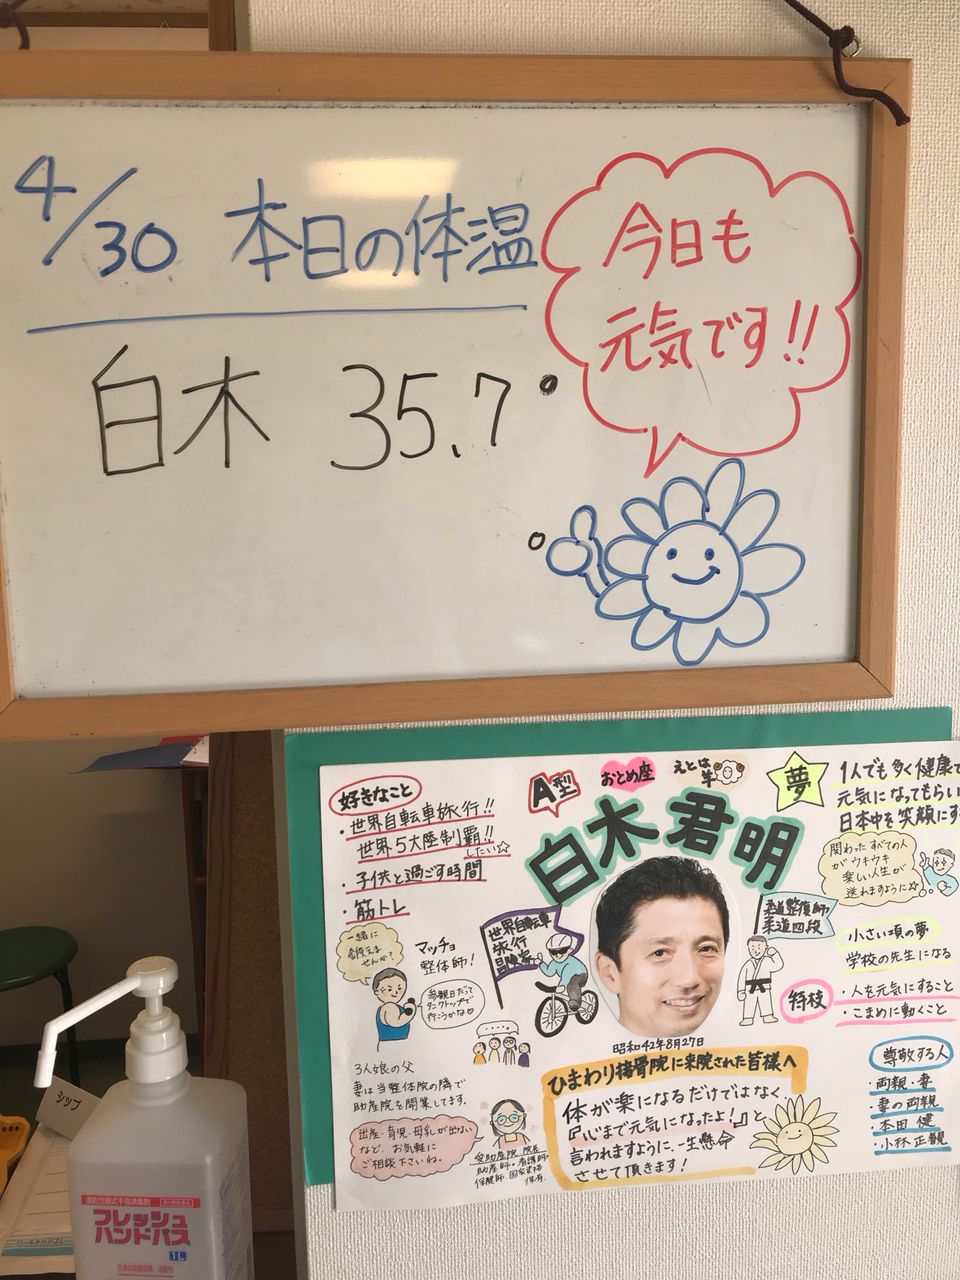 4/30 本日の体温
白木 35.7°
今日も
元気です!!
好きなこと
・世界自転車旅行!!
世界5大陸制覇!!
したい☆
・子供と過ごす時間
・筋トレ
A型
おとめ座
えとは
羊
白木君明
夢
1人でも多く健康で
元気になってもらい
日本中を笑顔にす
関わったすべての人
がウキウキ
楽しい人生が
送れますように☆
世界自転車
旅行
冒険家
柔道整復師
柔道四段
小さい頃の夢
学校の先生になる
特技
・人を元気にすること
・こまめに動くこと
一緒に
鍛えま
せんか?
マッチョ
整体師!
参観日だって
タンクトップで
行こうかな♡
昭和42年8月27日
3人娘の父
妻は当整体院の隣で
助産院を開業してます。
出産・育児・母乳が出ない
など、お気軽に
ご相談下さいね。
愛助産院 院長
助産師・看護師
保健師 国家資格
保有。
ひまわり接骨院に来院された皆様へ
体が楽になるだけではなく、
『心まで元気になったよ!』と
言われますように、一生懸命
させて頂きます!
尊敬する人
・両親・妻
・妻の両親
・本田 健
・小林正観
シップ
速乾性擦式手指消毒剤
フレッシュ
ハンドパス
1L